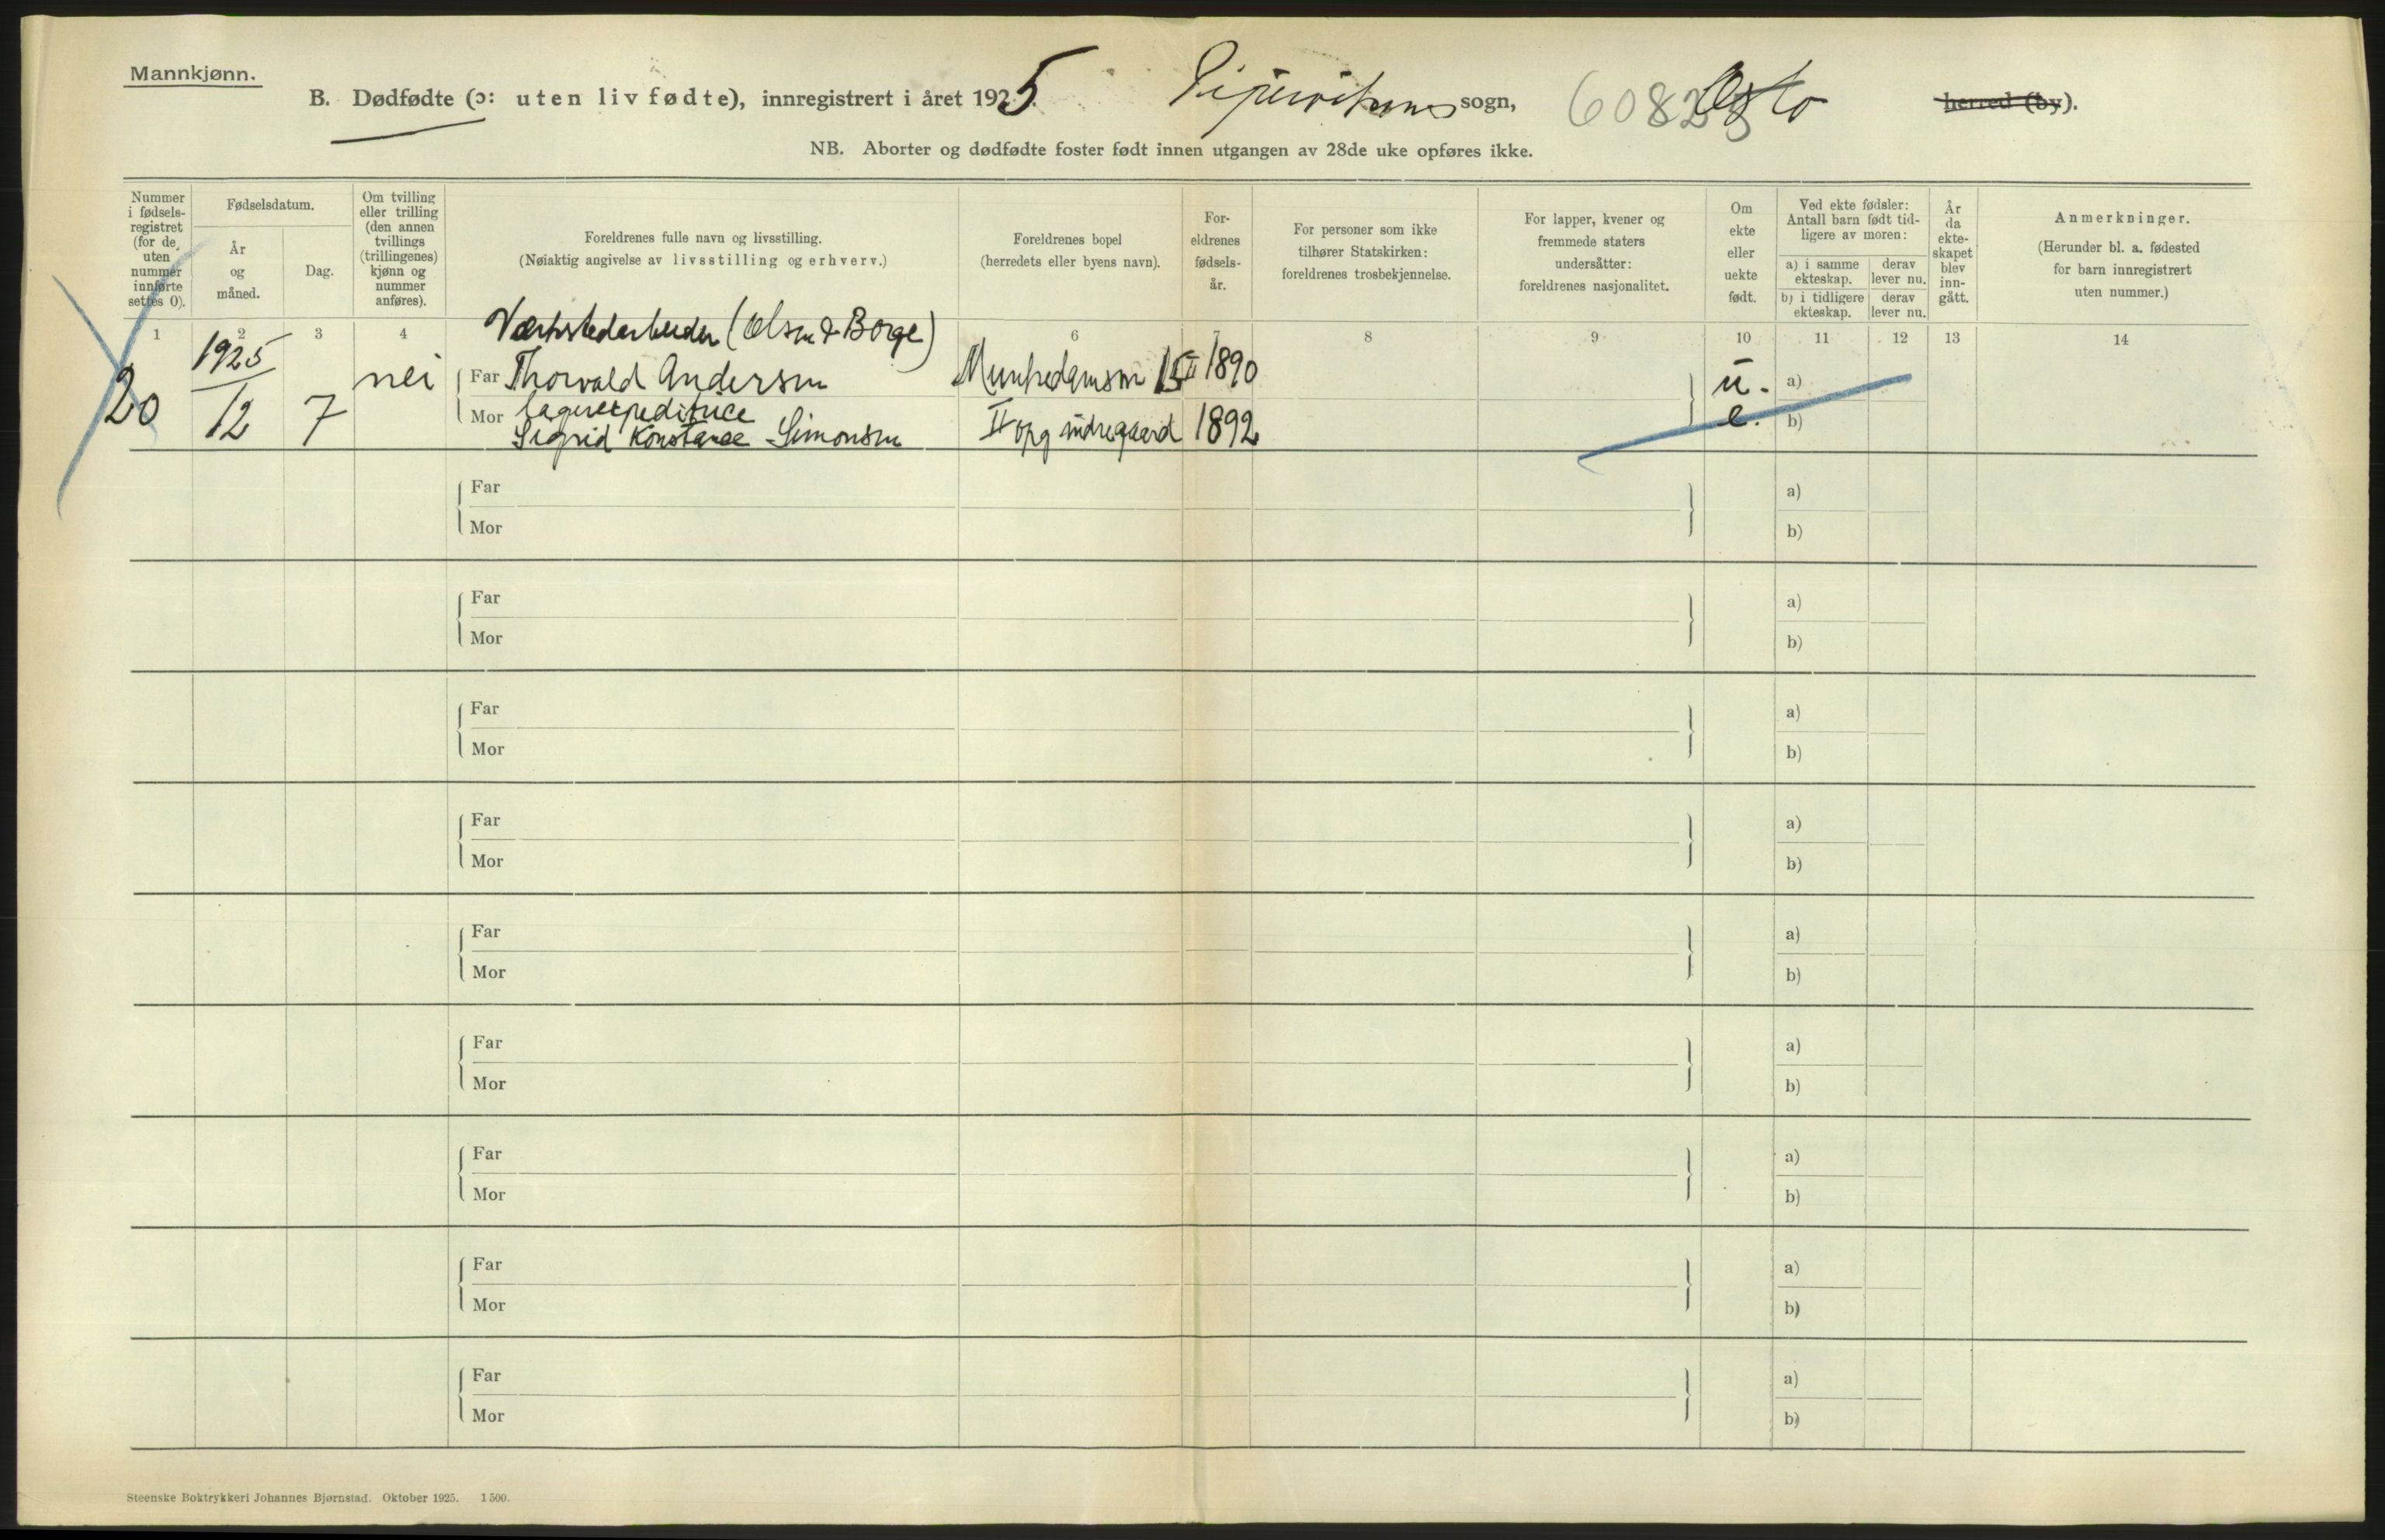 Mannkjønn.
B. Dødfødte (ɔ: uten liv fødte), innregistrert i året 1925 Pipervikens sogn, 6082 Oslo herred (by).
NB. Aborter og dødfødte foster født innen utgangen av 28de uke opføres ikke.
Nummer i fødselsregistret (for de uten nummer innførte settes 0).
Fødselsdatum.
År og måned.
Dag.
Om tvilling eller trilling (den annen tvillings (trillingenes) kjønn og nummer anføres).
Foreldrenes fulle navn og livsstilling.
(Nøiaktig angivelse av livsstilling og erhverv.)
Foreldrenes bopel
(herredets eller byens navn).
Foreldrenes fødselsår.
For personer som ikke tilhører Statskirken: foreldrenes trosbekjennelse.
For lapper, kvener og fremmede staters undersåtter: foreldrenes nasjonalitet.
Om ekte eller uekte født.
Ved ekte fødsler: Antall barn født tidligere av moren:
a) i samme ekteskap.
derav lever nu.
b) i tidligere ekteskap.
derav lever nu.
År da ekteskapet blev inngått.
Anmerkninger.
(Herunder bl. a. fødested for barn innregistrert uten nummer.)
1 2 3 4 6 7 8 9 10 11 12 13 14
Værkstedarbeider (Olsen & Borge)
1925
nei Far Thorvald Andersen Munkedamsvn 15 II 1890 u. a)
20 12 7 Mor lagerexpeditrice
Sigrid Konstance Simonsen II opg indregaard 1892 e. b)
Far a)
Mor b)
Far a)
Mor b)
Far a)
Mor b)
Far a)
Mor b)
Far a)
Mor b)
Far a)
Mor b)
Far a)
Mor b)
Far a)
Mor b)
Far a)
Mor b)
Steenske Boktrykkeri Johannes Bjørnstad. Oktober 1925. 1500.